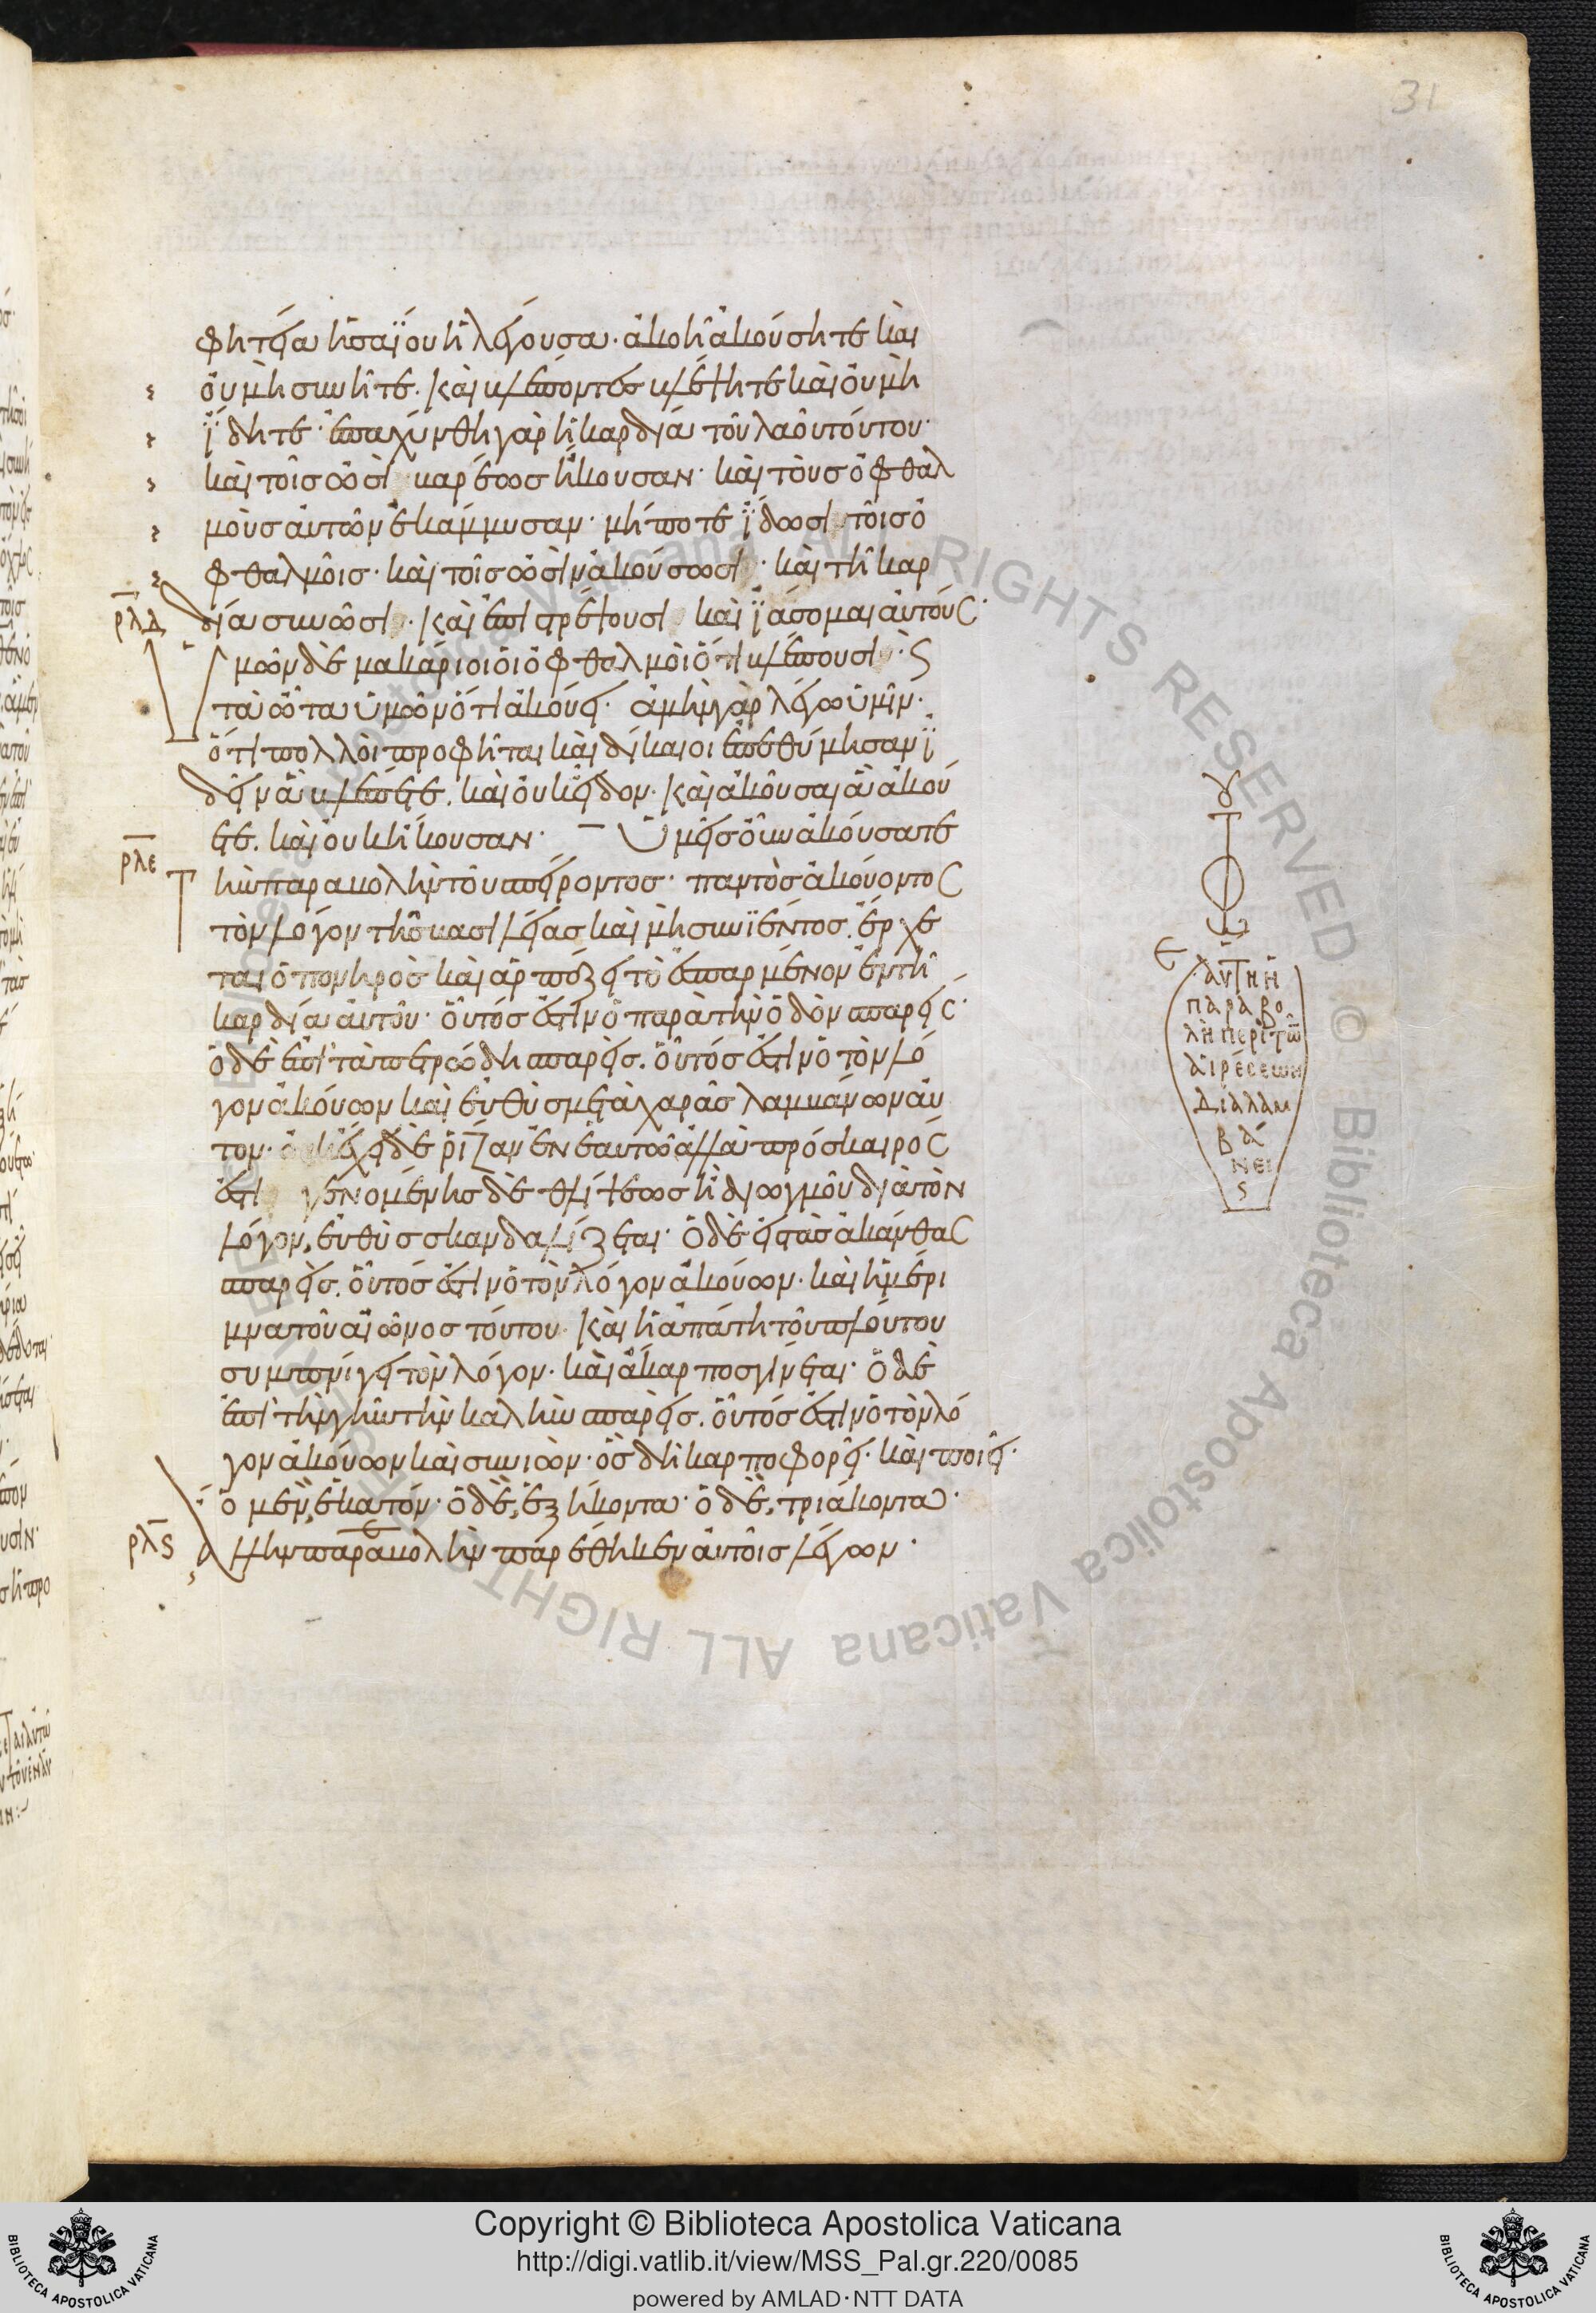 31
φητεία ἡσαΐου ἡ λέγουσα· ἀκοῆ ἀκούσητε καὶ
οὐ μὴ συνῆτε· καὶ βλέποντες βλέψητε καὶ οὐ μὴ
ἴδητε· ἐπαχύνθη γὰρ ἡ καρδία τοῦ λαοῦ τούτου·
καὶ τοῖς ὠσὶ βαρέως ἤκουσαν· καὶ τοὺς ὀφθαλ
μοὺς αὐτῶν ἐκάμμυσαν· μήποτε ἴδωσι τοῖς ὀ
φθαλμοῖς· καὶ τοῖς ὠσὶν ἀκούσωσι· καὶ τῆ καρ
ρλδ
δία συνῶσι· καὶ ἐπιστρέψουσι καὶ ϊάσομαι αὐτούς·
ὑμῶν δὲ μακάριοι οἱ ὀφθαλμοὶ ὅτι βλέπουσι· ϛ
τὰ ὦτα ὑμῶν ὅτι ἀκούει· ἀμὴν γὰρ λέγω ὑμῖν·
ὅτι πολλοὶ προφῆται καὶ δίκαιοι ἐπεθύμησαν ἰ
δεῖν ἃ βλέπετε. καὶ οὐκ εἶδον· καὶ ἀκοῦσαι ἃ ἀκού
ετε. καὶ οὐκ ἤκουσαν· ὑμεῖς οὖν ἀκούσατε
ρλε
τὴν παραβολὴν τοῦ σπείροντος· παντὸς ἀκούοντος
τὸν λόγον τῆς βασιλείας καὶ μὴ συνϊέντος. ἔρχε
ται ὁ πονηρὸς καὶ ἁρπάζει τὸ ἐσπαρμένον ἐν τῆ
καρδία αὐτοῦ· οὗτός ἐστιν ὁ παρὰ τὴν ὁδὸν σπαρείς·
ὁ δὲ ἐπὶ τὰ πετρώδη σπαρείς. οὗτός ἐστιν ὁ τὸν λό
γον ἀκούων καὶ εὐθὺς μετὰ χαρᾶς λαμβάνων αὐ
τον· οὐκ ἔχει δὲ ῥίζαν ἐν ἑαυτῶ ἀλλὰ πρόσκαιρός
ἐστι γενομένης δὲ θλίψεως ἢ διωγμοῦ διὰ τὸν
λόγον, εὐθὺς σκανδαλίζεται· ὁ δὲ εἰς τὰς ἀκάνθας
σπαρείς. οὗτός ἐστιν ὁ τὸν λόγον ἀκούων· καὶ ἡ μέρι
μνα τοῦ αἰῶνος τούτου· καὶ ἡ ἀπάτη τοῦ πλούτου
συμπνίγει τὸν λόγον· καὶ ἄκαρπος γίνεται· ὁ δὲ
ἐπὶ τὴν γῆν τὴν καλὴν σπαρείς. οὗτός ἐστιν ὁ τὸν λό
γον ἀκούων καὶ συνιών· ὃς δὴ καρποφορεῖ· καὶ ποιεῖ·
ὁ μὲν, ἑκατόν· ὁ δὲ, ἑξήκοντα· ὁ δὲ, τριάκοντα·
ρλϛ
ἄλλην παραβολὴν παρέθηκεν αὐτοῖς λέγων·
ε
αὕτη ἡ
παραβο
λὴ περὶ τῶν
αἱρέσεων
διαλαμ
βά
νει
Copyright © Biblioteca Apostolica Vaticana
http://digi.vatlib.it/view/MSS_Pal.gr.220/0085
powered by AMLAD·NTT DATA